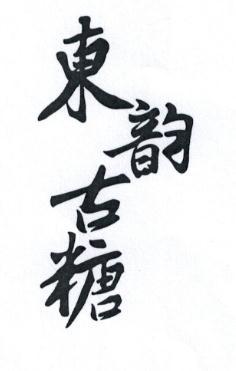 東韵古糖